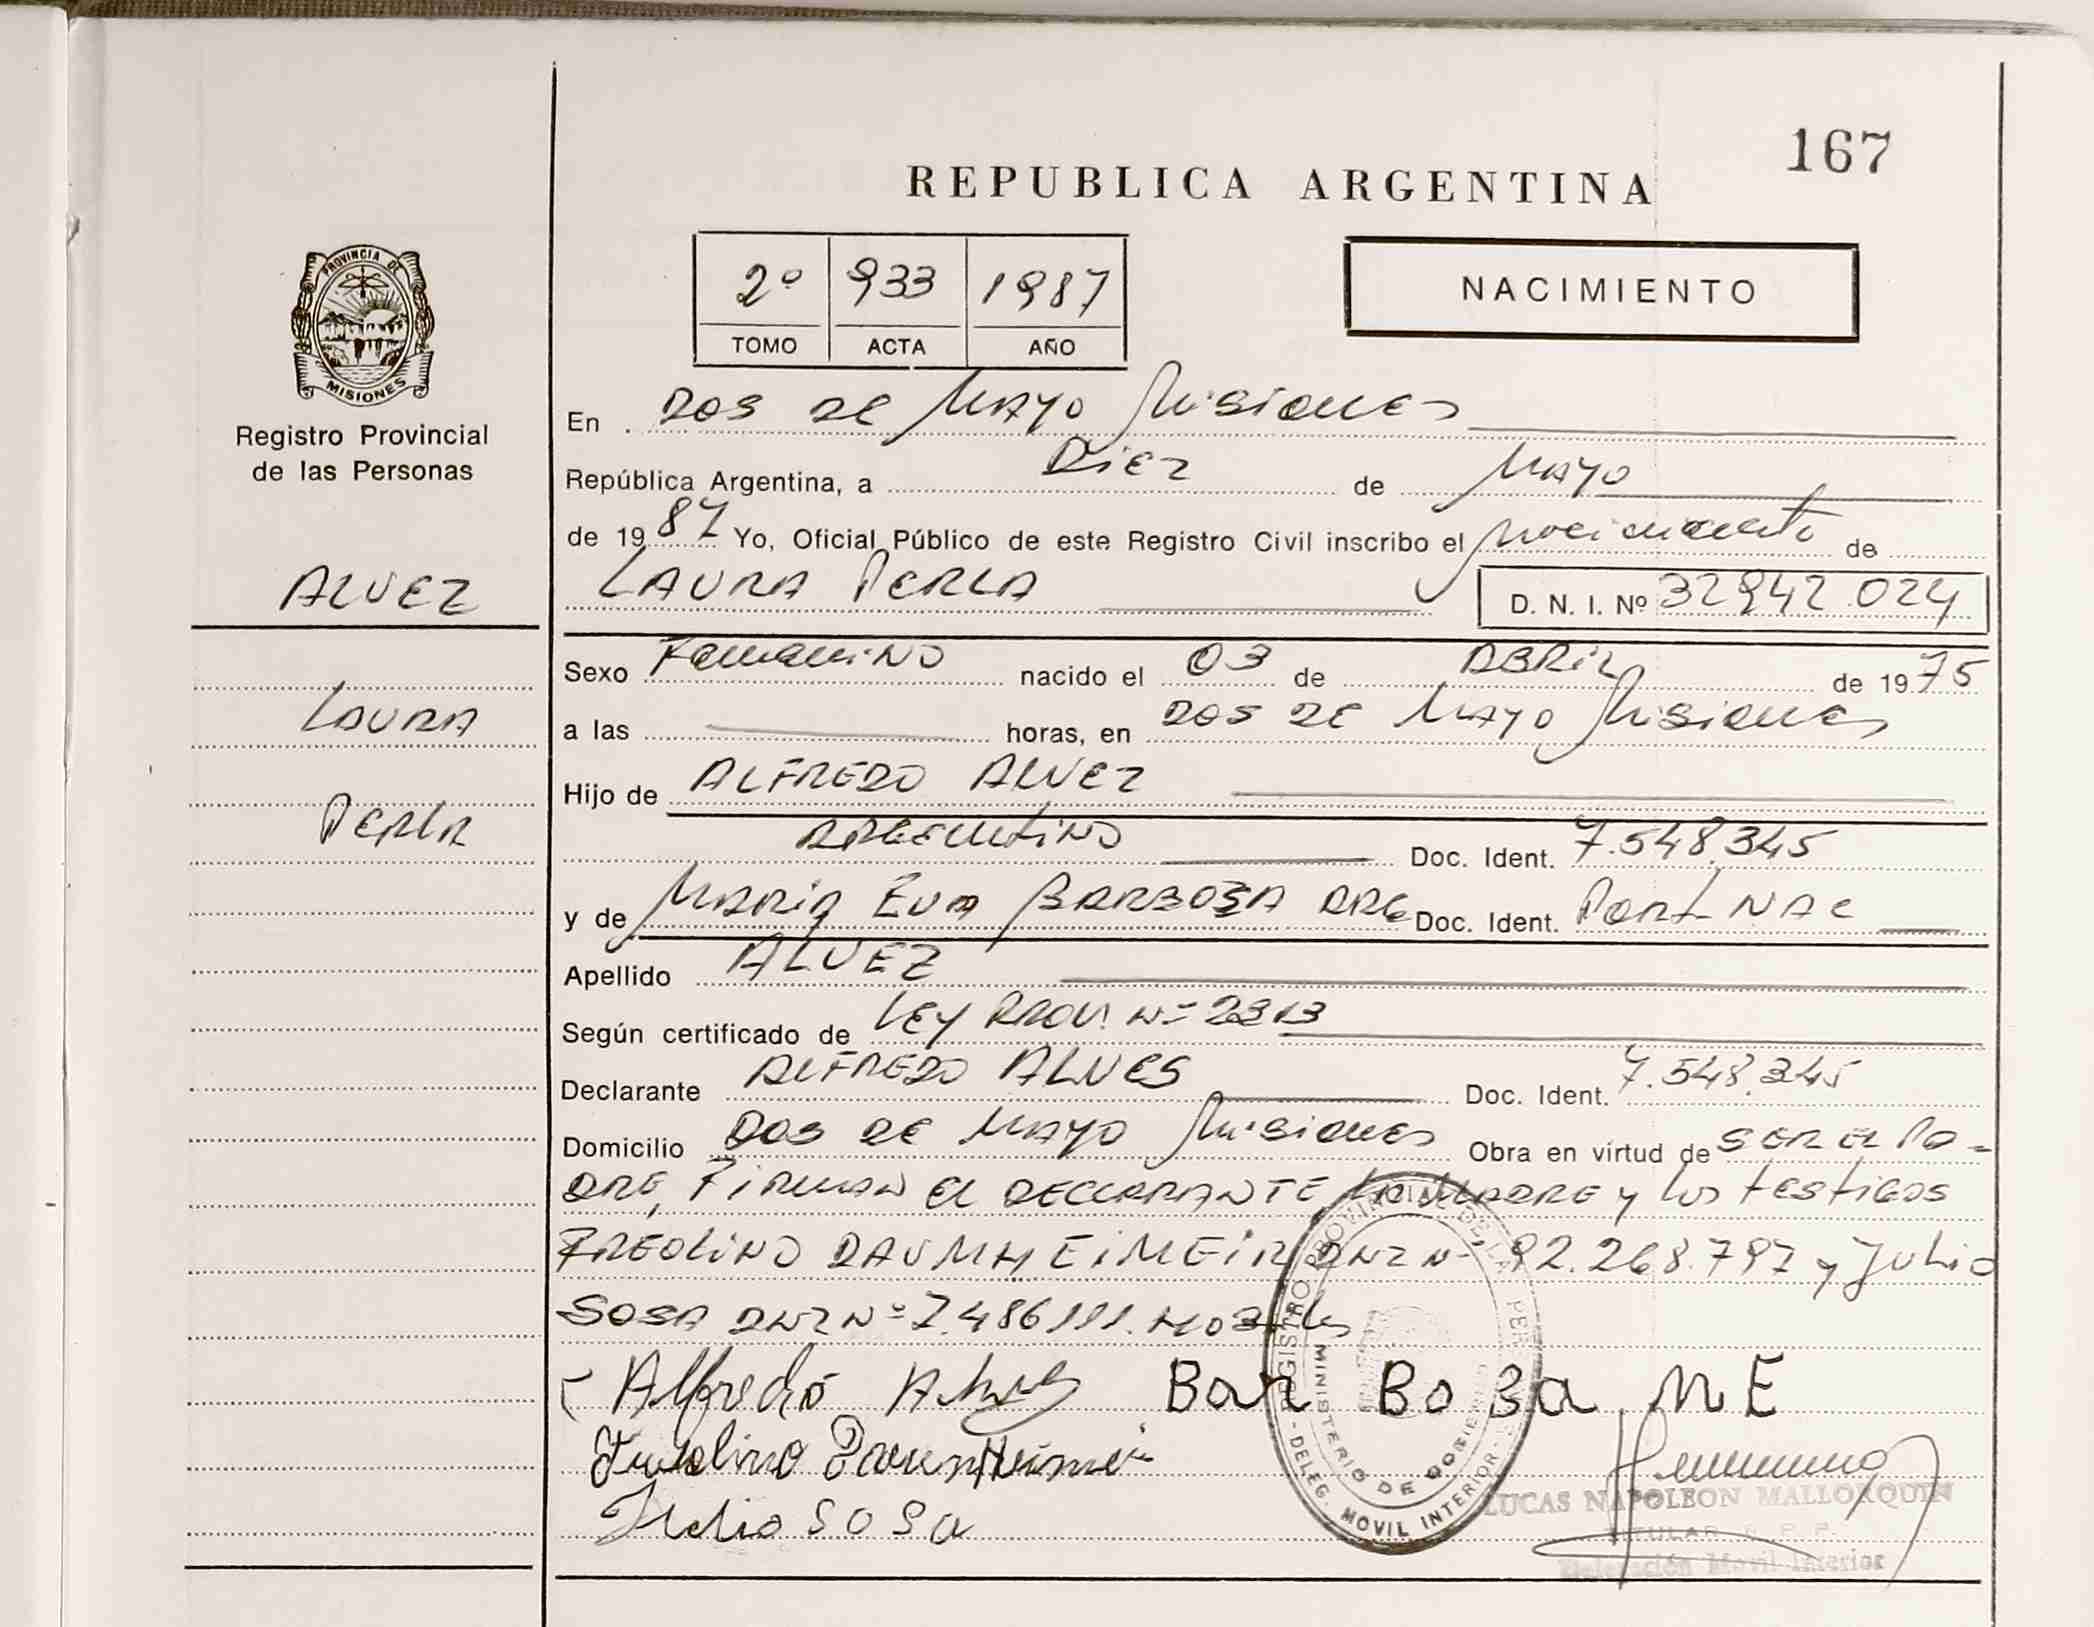 167
REPUBLICA ARGENTINA
2º 933 1987
TOMO ACTA AÑO
NACIMIENTO
PROVINCIA DE
MISIONES
Registro Provincial
de las Personas
ALVEZ
LAURA
PERLA
En DOS DE MAYO Misiones
República Argentina, a Diez de MAYO
de 1987 Yo, Oficial Público de este Registro Civil inscribo el nacimiento de
LAURA PERLA D. N. I. Nº 32942.024
Sexo Femenino nacido el 03 de ABRIL de 1975
a las horas, en DOS DE MAYO Misiones
Hijo de ALFREDO ALVEZ
ARGENTINO Doc. Ident. 7.548.345
y de MARIA EVA BARBOZA ARG Doc. Ident. Port NAC
Apellido ALVEZ
Según certificado de LEY PROV. Nº 2313
Declarante ALFREDO ALVES Doc. Ident. 7.548.345
Domicilio DOS DE MAYO Misiones Obra en virtud de SER EL PA-
DRE, FIRMAN EL DECLARANTE LA MADRE y los testigos
FREOLINO DAUMHEIMEIR DNI Nº 92.268.797 y Julio
SOSA DNI Nº 7.486111.
Alfredo Alves Bar Boza ME
Julio SOSA
REGISTRO PROVINCIAL DE LAS PER
MINISTERIO DE GOBIERNO
- DELEG. MOVIL INTERIOR -
LUCAS NAPOLEON MALLORQUIN
TITULAR
Delegación Movil Interior